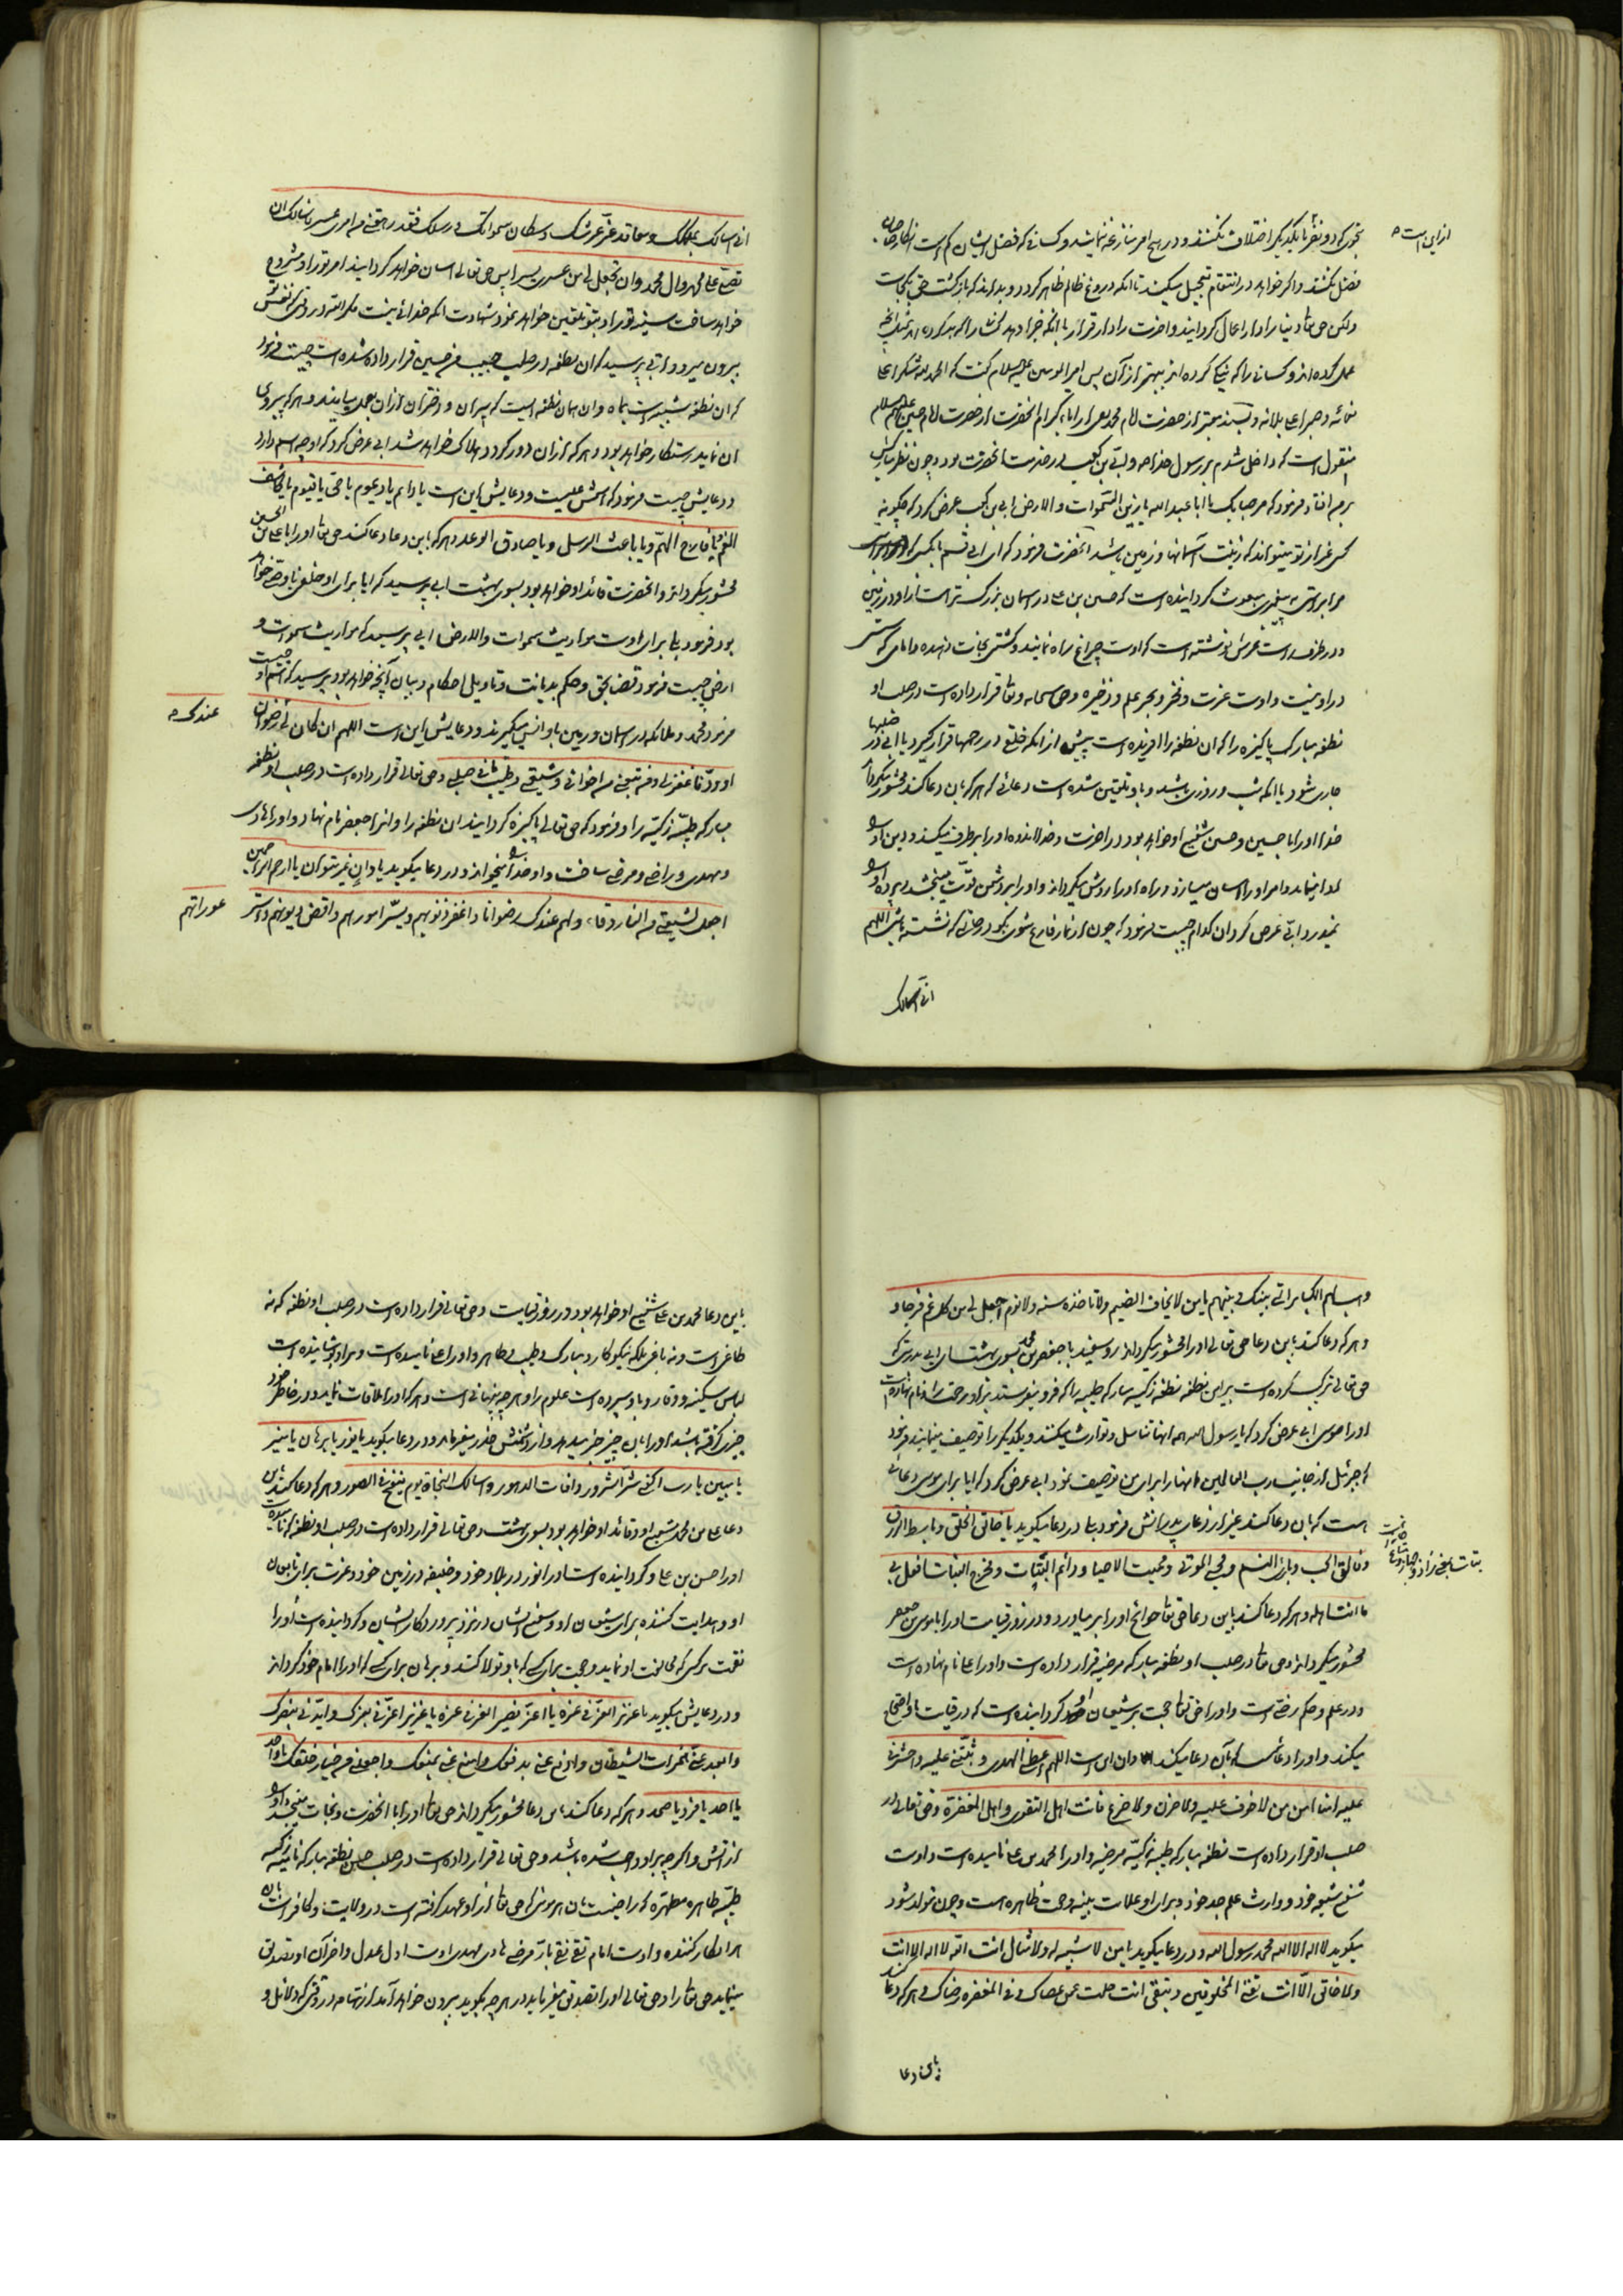 ازین است
تجویز کرد و نفر با یکدیگر اختلاف نکنند و در هیچ امر منازعه ننمایند و کسانی که فضل ایشان کم است انکار صاحبان
فضل نکنند و اگر خواهد در انتقام تعجیل میکند تا آنکه دروغ ظالم ظاهر گردد و بداند که بازگشت حق بکجاست
ولکن حق تعالی دنیا را دار اعمال گردانید و آخرت را دار قرار تا آنکه جزا دهد آنها را که بد کرده اند بآنچه
عمل کرده اند و کسانی را که نیکی کرده اند ببهتر از آن پس امیر المومنین علیه السلام گفت که الحمد لله شکرا علی
نعمائه و صبرا علی بلائه و بسند معتبر از حضرت امام محمد تقی از آباء کرام آنحضرت از حضرت امام حسین علیهم السلام
منقول است که داخل شدم بر رسول خدا ص و ابی بن کعب در خدمت آنحضرت بود و چون نظر مبارکش
بر من افتاد فرمود که مرحبا بک یا ابا عبد الله یا زین السموات و الارض ابی بن کعب عرض کرد که چگونه
کسی غیر از تو میتواند که زینت آسمانها و زمین باشد آنحضرت فرمود که ای ابی قسم بآنکسی که
مرا براستی به پیغمبری مبعوث گردانیده است که حسین بن علی در آسمان بزرگ تر است از او در زمین
و در طرف راست عرش نوشته است که اوست چراغ راه نماینده و کشتی نجات دهنده و امامی که سستی
در او نیست و اوست عزت و فخر و بحر علم و ذخیره و حق سبحانه و تعالی قرار داده است در صلب او
نطفه مبارک پاکیزه را که آن نطفه را آفریده است پیش از آنکه خلقی در رحمها قرار گیرد یا آبی در صلبها
جاری شود یا آنکه شب و روزی باشد و باو تلقین شده است دعائی که هر که بآن دعا کند محشور میگرداند
خدا او را با حسین و حسین شفیع او خواهد بود در آخرت و خدا اندوه او را برطرف میکند و دین او را
ادا مینماید و امر او را آسان میسازد و راه او را روشن میگرداند و او را بر دشمن قوت میبخشد و پرده او را
نمیدرد ابی عرض کرد آن کدام چیست فرمود که چون از نماز فارغ شوی بگو در حالتی که نشسته باشی اللهم
انی اسالک
انی اسالک بملکک و معاقد عز عرشک و سکان سمواتک و رسلک فقد رهقنی من امری عسر فاسالک ان
تصلی علی محمد و آل محمد و ان تجعل لی من عسری یسرا پس حق تعالی آسان خواهد گردانید امر تو را و مشروح
خواهد ساخت سینه تو را و بتو تلقین خواهد نمود شهادت آنکه خدائی نیست مگر الله در وقتی که نفس تو
بیرون میرود ابی پرسید که آن نطفه در صلب حبیب من حسین قرار داده شده است چیست فرمود
که آن نطفه شبیه است بماه و آن همان نطفه است که پسران و دختران از آن بعمل میایند و هر که پیروی
آن نماید رستگار خواهد بود و هر که از آن دور گردد هلاک خواهد شد ابی عرض کرد که او چه اسم دارد
و دعایش چیست فرمود که اسمش علیست و دعایش این است یا دائم یا دیموم یا حی یا قیوم یا کاشف
الغم یا فارج الهم و یا باعث الرسل و یا صادق الوعد هر که باین دعا دعا کند حق تعالی او را با علی بن الحسین
محشور میگرداند و آنحضرت قائد او خواهد بود بسوی بهشت ابی پرسید که آیا برای او خلفی یا وصی خواهد
بود فرمود بلی برای اوست مواریث سموات و الارض ابی پرسید که مواریث سموات و
ارض چیست فرمود قضا بحق و حکم بدیانت و تاویل احکام و بیان آنچه خواهد بود پرسید که اسم او چیست
فرمود محمد و ملائکه در آسمان و زمین باو انس میگیرند و دعایش این است اللهم ان کان لی رضوان
عندک
و ودا فاغفر لی و من تبعنی من اخوانی و شیعتی و طیب ما فی صلبی و حق تعالی قرار داده است در صلب او نطفه
مبارکه طیبه زکیه را و فرمود که حق تعالی پاکیزه گردانید آن نطفه را و آنرا جعفر نام نهاد و او را هادی
و مهدی و راضی و مرضی ساخت و او خدا را میخواند و در دعا میگوید یا دان غیر متوان یا ارحم الراحمین
اجعل لشیعتی من النار وقاء و لهم عندک رضوانا و اغفر ذنوبهم و یسر امورهم و اقض دیونهم و استر
عوراتهم
و هب لهم الکبائر التی بینک و بینهم یا من لا یخاف الضیم و لا تاخذه سنه و لا نوم اجعل لی من کل غم فرجا و
و هر که دعا کند باین دعا حق تعالی او را محشور میگرداند رو سفید با جعفر بن محمد بسوی بهشت ای ابی بدرستی که
حق تعالی ترکیب کرده است بر این نطفه نطفه زکیه مبارکه طیبه را که فرو میفرستد بر او رحمت را و نام نهاده است
او را موسی ابی عرض کرد که یا رسول الله همه اینها تناسل و توارث میکنند و یکدیگر را توصیف مینمایند فرمود
که جبرئیل از جانب رب العالمین اینها را برای من توصیف نمود ابی عرض کرد که آیا برای موسی دعائی
است که بآن دعا کند غیر از دعای پدرانش فرمود بلی در دعا میگوید یا خالق الخلق و باسط الرزق
و فالق الحب و باری النسم و محیی الموتی و ممیت الاحیاء و دائم الثبات و مخرج النبات افعل بی
ما انت اهله و هر که دعا کند باین دعا حق تعالی حوائج او را بر میاورد و در روز قیامت او را با موسی بن جعفر
محشور میگرداند و حق تعالی در صلب او نطفه مبارکه مرضیه قرار داده است و او را علی نام نهاده است
و در علم و حکم رضی است و او را حق تعالی حجت بر شیعیان او گردانیده است که در قیامت باو احتجاج
میکند و او را دعائیست که بآن دعا میکند و آن این است اللهم اعطنی الهدی و ثبتنی علیه و احشرنی
علیه آمنا امن من لا خوف علیه و لا حزن و لا جزع فانت اهل التقوی و اهل المغفرة و حق تعالی در
صلب او قرار داده است نطفه مبارکه طیبه زکیه مرضیه و او را محمد بن علی نامیده است و اوست
شفیع شیعه خود و وارث علم جد خود و برای او علامت بینه و حجت ظاهره است و چون تولد شود
میگوید لا اله الا الله محمد رسول الله و در دعا میگوید یا من لا شبیه له و لا مثال انت الله لا اله الا انت
و لا خالق الا انت تفنی المخلوقین و تبقی انت حلمت عمن عصاک و فی المغفرة رضاک و هر که دعا کند
باین دعا
باین دعا محمد بن علی شفیع او خواهد بود در روز قیامت و حق تعالی قرار داده است در صلب او نطفه که نه
طاغی است و نه باغی بلکه نیکوکار و مبارک و طیب و طاهر و او را علی نامیده است و بر او پوشانیده است
لباس سکینه و وقار و باو سپرده است علوم را و هر چه پنهانی است و هر که او را ملاقات نماید و در خاطر خود
چیزی گرفته باشد او را بآن چیز خبر میدهد و از دشمنش حذر میفرماید و در دعا میگوید یا نور یا برهان یا منیر
یا مبین یا رب اکفنی شر الشرور و آفات الدهور و اسالک النجاة یوم ینفخ فی الصور و هر که دعا کند باین
دعا علی بن محمد شفیع او و قائد او خواهد بود بسوی بهشت و حق تعالی قرار داده است در صلب او نطفه که نامیده است
او را حسن بن علی و گردانیده است او را نور در بلاد خود و خلیفه در زمین خود و عزت برای تابعان
او و هدایت کننده برای شیعیان او و شفیع ایشان در نزد پروردگار ایشان و گردانیده است او را
نقمت بر کسی که مخالفت او نماید و حجت برای کسی که باو تولا کند و برهان برای کسی که او را امام خود گرداند
و در دعایش میگوید یا عزیز العز فی عزه یا اعز نصیر العز فی عزه یا عزیز اعزنی بعزک و ایدنی بنصرک
و ابعد عنی همزات الشیطان و ادفع عنی بدفعک و امنع عنی بمنعک و اجعلنی من خیار خلقک یا واحد
یا احد یا فرد یا صمد و هر که دعا کند باین دعا محشور میگرداند حق تعالی او را با آنحضرت و نجات میبخشد او را
از آتش و اگر چه بر او واجب شده باشد و حق تعالی قرار داده است در صلب حسن نطفه مبارکه نامیه زکیه
طیبه طاهره مطهره که راضیست بآن هر مومنی که حق تعالی از او عهد گرفته است در ولایت و کافر است باو
هر انکار کننده و اوست امام تقی نقی بار مرضی هادی مهدی اوست اول عدل و آخر آن او تصدیق
مینماید حق تعالی را و حق تعالی او را تصدیق میفرماید در هر چه بگوید بیرون خواهد آمد از تهامه در وقتی که دلائل و